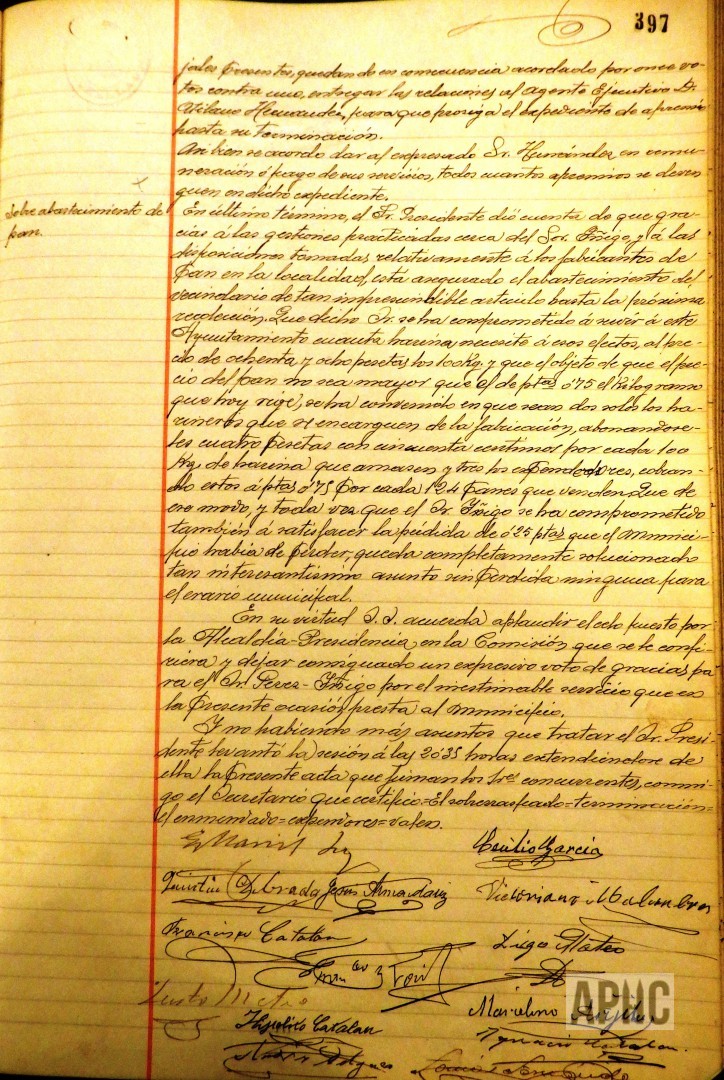 397
jales presentes, quedando en consecuencia acordado por once vo-
tos contra uno, entregar las relaciones al agente Ejecutivo D.
Atilano Hernandez, para que prosiga el expediente de apremio
hasta su terminación.
Asi bien se acordo dar al expresado Sr. Hernández en remu-
neración ó pago de sus servicios, todos cuantos apremios se deven-
guen en dicho expediente.
Sobre abastecimiento de
pan.
En último termino, el Sr. Presidente dió cuenta de que gra-
cias á las gestiones practicadas cerca del Sor. Iñigo, y á las
disposiciones tomadas relativamente á los fabricantes de
pan en la localidad, está asegurado el abastecimiento del
vecindario de tan imprescindible articulo hasta la próxima
recolección. Que dicho Sr. se ha comprometido á servir á este
Ayuntamiento cuanta harina necesite á esos efectos, al pre-
cio de ochenta y ocho pesetas los 100 Kg. y que el objeto de que el pre-
cio del pan no sea mayor que el de ptas 0'75 el Kilogramo
que hoy rige, se ha convenido en que sean dos solos los ha-
rineros que se encarguen de la fabricación, abonandose-
les cuatro pesetas con cincuenta centimos por cada 100
Kg. de harina que amasen y tres los expendedores, cobran-
do estos á ptas 0'75 por cada 124 panes que venden. Que de
ese modo, y toda vez que el Sr. Iñigo se ha comprometido
también á satisfacer la pédida de 0'25 ptas que el Munici-
pio habia de perder, queda completamente solucionado
tan interesantisimo asunto sin perdida ninguna para
el erario municipal.
En su virtud S.S. acuerda aplaudir el celo puesto por
la Alcaldia-Presidencia, en la Comisión que se le confi-
riera y dejar consignado un expresivo voto de gracias pa-
ra el Sr. Perez-Iñigo por el inestimable servicio que en
la presente ocasión presta al municipio.
Y no habiendo más asuntos que tratar el Sr. Presi-
dente levantó la sesión á las 20'35 horas extendiéndose de
ella la presente acta que firman los Sres concurrentes, conmi-
go el Secretario que certifico=El sobrerraspado=terminación=
el enmendado=expendores=valen.
Cecilio Garcia
Quintin Jesus
Victoriano
Francisco Catalan
Diego Mateo
Justo
Marcelino
Hipolito Catalan
Ignacio Catalan
APHC